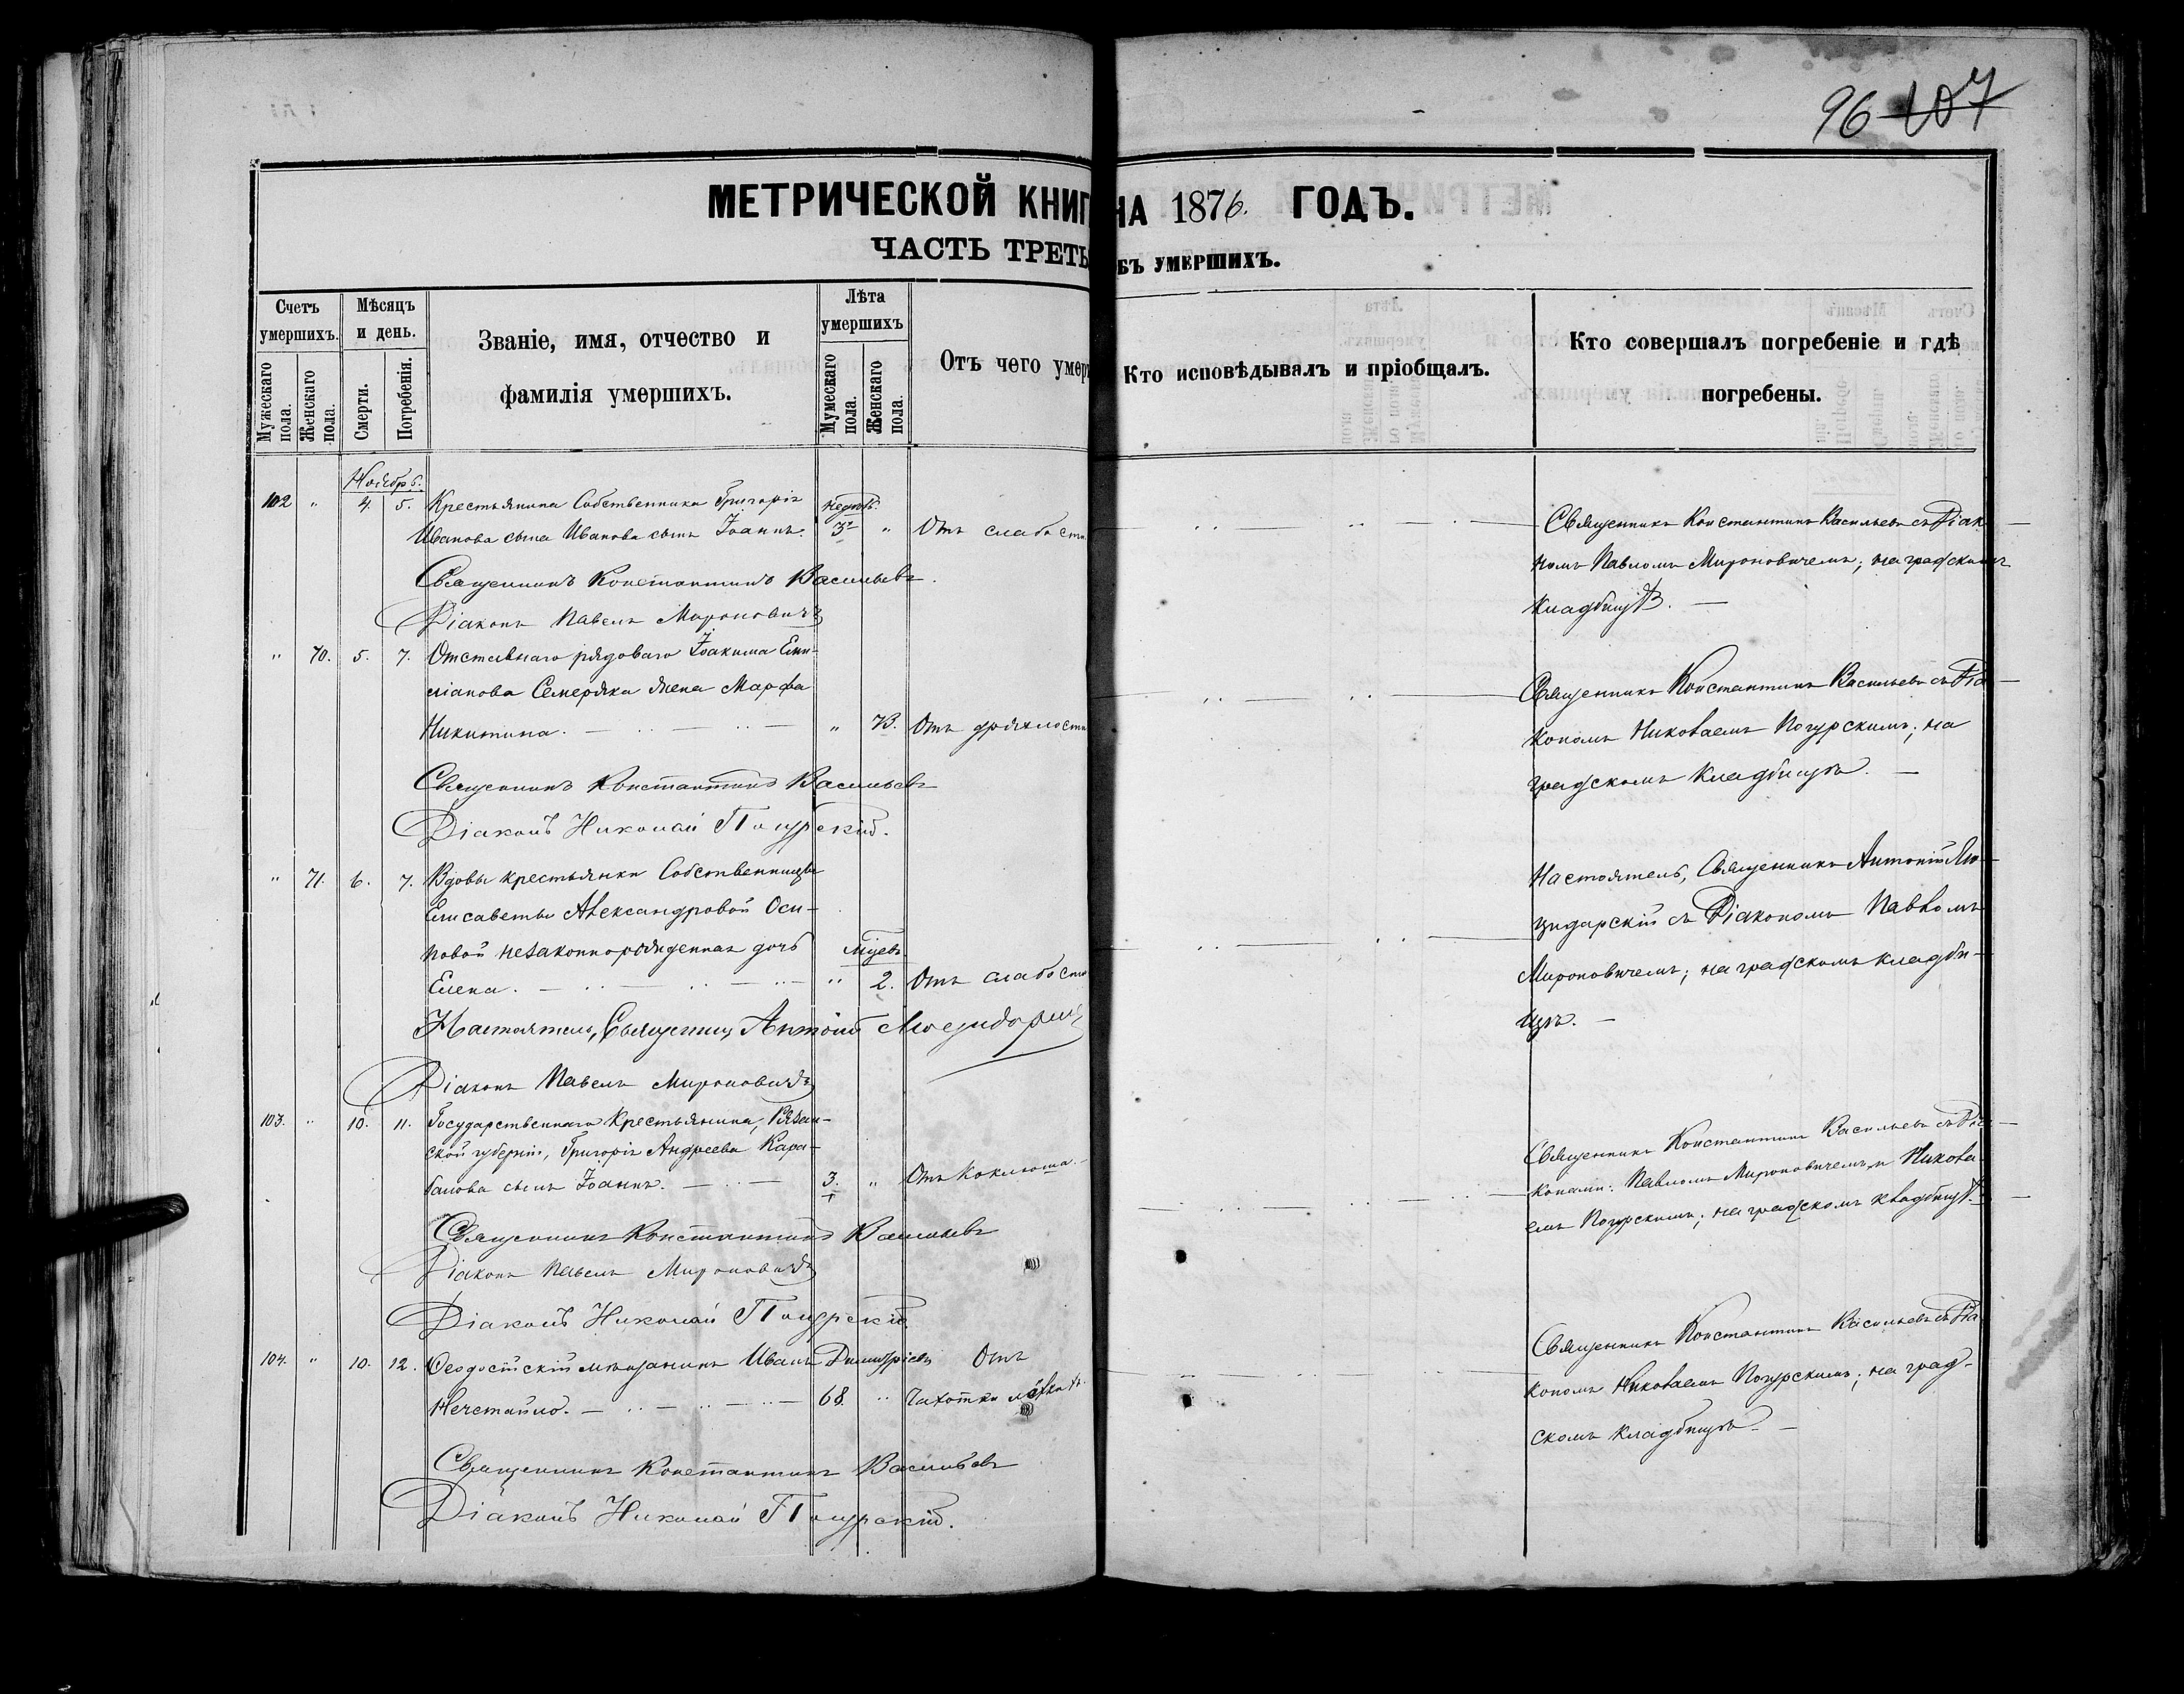 96 107
МЕТРИЧЕСКОЙ КНИГ НА 1876. ГОДЪ.
ЧАСТЬ ТРЕТЬ БЪ УМЕРШИХЪ.
Счетъ умершихъ.
Мужескаго пола.
Женскаго пола.
Мѣсяцъ и день.
Смерти.
Погребенія.
Званіе, имя, отчество и
фамилія умершихъ.
Лѣта умершихъ
Мужескаго пола.
Женскаго пола.
Отъ чего умер
Кто исповѣдывалъ и пріобщалъ.
Кто совершалъ погребеніе и гдѣ
погребены.
Ноябрь.
102 " 4. 5. Крестьянина Собственника Григорія недѣль.
Иванова сына Иванова сынъ Іоаннъ. 3 " Отъ слабости
Священникъ Константинъ Васильевъ.
Діаконъ Павелъ Мироновичъ
Священникъ Константинъ Васильевъ съ Діако
номъ Павломъ Мироновичемъ; на градскомъ
кладбищѣ. —
" 70. 5. 7. Отставнаго рядоваго Іоакима Еми-
ліанова Семеряка жена Марфа
Никитина. — " 73. Отъ дряхлости
Священникъ Константинъ Васильевъ
Діаконъ Николай Погурскій.
Священникъ Константинъ Васильевъ съ Діа
кономъ Николаемъ Погурскимъ; на
градскомъ кладбищѣ. —
" 71. 6. 7. Вдовы крестьянки Собственницы
Елисаветы Александровой Оси-
повой незаконнорожденная дочь мѣсяц.
Елена. — " 2. Отъ слабости
Настоятель, Священникъ Антоній
Діаконъ Павелъ Мироновичъ
Настоятель, Священникъ Антоній
цидарскій съ Діакономъ Павломъ
Мироновичемъ; на градскомъ кладби-
щѣ. —
103. " 10. 11. Государственнаго Крестьянина, Рязан-
ской губерніи, Григорія Андреева Кара-
банова сынъ Іоаннъ. — 3. " Отъ коклюша.
Священникъ Константинъ Васильевъ
Діаконъ Павелъ Мироновичъ
Діаконъ Николай Погурскій.
Священникъ Константинъ Васильевъ съ Діа
конами: Павломъ Мироновичемъ и Никола-
емъ Погурскимъ; на градскомъ кладбищѣ.
104. " 10. 12. Ѳеодосійскій мѣщанинъ Иванъ Димитріевъ Отъ
Нечетайло. — 68. " чахотки лёгкихъ.
Священникъ Константинъ Васильевъ
Діаконъ Николай Погурскій.
Священникъ Константинъ Васильевъ съ Діа
кономъ Николаемъ Погурскимъ; на град-
скомъ кладбищѣ. —